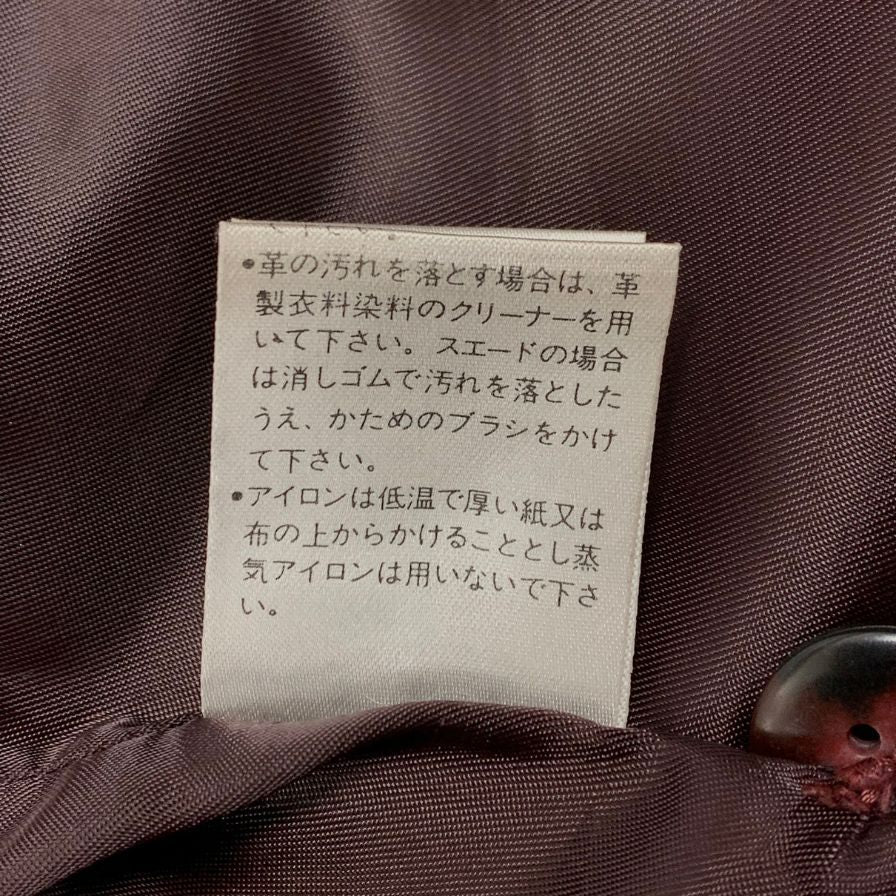 ●革の汚れを落とす場合は、革
製衣料染料のクリーナーを用
いて下さい。スエードの場合
は消しゴムで汚れを落とした
うえ、かためのブラシをかけ
て下さい。
●アイロンは低温で厚い紙又は
布の上からかけることとし蒸
気アイロンは用いないで下さ
い。